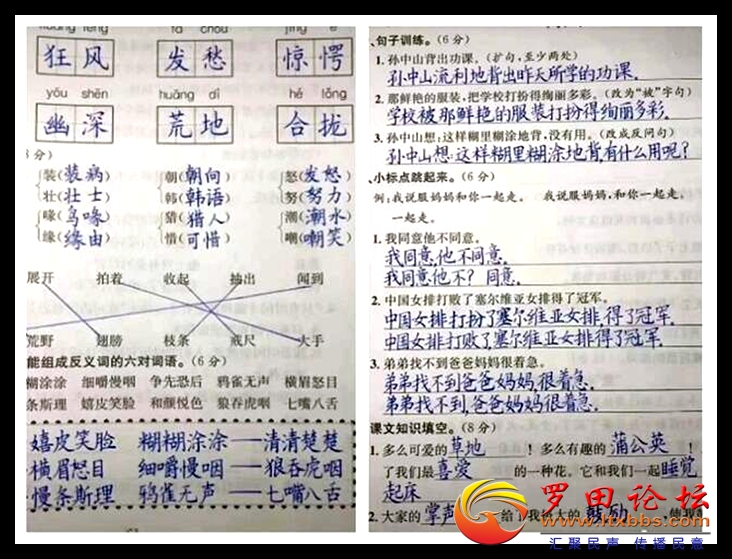 kuáng fēng
fā chóu
jīng è
狂风
发愁
惊愕
yōu shēn
huāng dì
hé lǒng
幽深
荒地
合拢
分）
装(装病)
朝(朝向)
怒(发怒)
壮(壮士)
韩(韩语)
努(努力)
喙(鸟喙)
猎(猎人)
潮(潮水)
缘(缘由)
惜(可惜)
嘲(嘲笑)
展开 拍着 收起 抽出 闻到
荒野 翅膀 枝条 戒尺 大手
能组成反义词的六对词语。(6分)
糊涂涂 细嚼慢咽 争先恐后 鸦雀无声 横眉怒目
条斯理 嬉皮笑脸 和颜悦色 狼吞虎咽 七嘴八舌
嬉皮笑脸 糊糊涂涂——清清楚楚
横眉怒目 细嚼慢咽——狼吞虎咽
慢条斯理 鸦雀无声——七嘴八舌
、句子训练。(6分)
1. 孙中山背出功课。(扩句,至少两处)
孙中山流利地背出昨天所学的功课.
2. 那鲜艳的服装,把学校打扮得绚丽多彩。(改为“被”字句)
学校被那鲜艳的服装打扮得绚丽多彩.
3. 孙中山想:这样糊里糊涂地背,没有用。(改成反问句)
孙中山想:这样糊里糊涂地背,有什么用呢?
小标点跳起来。(6分)
例:我说服妈妈和你一起走。 我说服妈妈,和你一起走。
一起走。
1. 我同意他不同意。
我同意,他不同意.
我同意他不?同意.
2. 中国女排打败了塞尔维亚女排得了冠军。
中国女排打扮了塞尔维亚女排,得了冠军.
中国女排打败了,塞尔维亚女排得了冠军.
3. 弟弟找不到爸爸妈妈很着急。
弟弟找不到爸爸妈妈,很着急.
弟弟找不到,爸爸妈妈很着急.
课文知识填空。(8分)
1. 多么可爱的草地！多么有趣的蒲公英！
了我们最喜爱的一种花。它和我们一起睡觉
起床
2. 大家的掌声 给了我极大的鼓励 ,使我
罗田论坛
www.ltxbbs.com
汇聚民声 传播民意